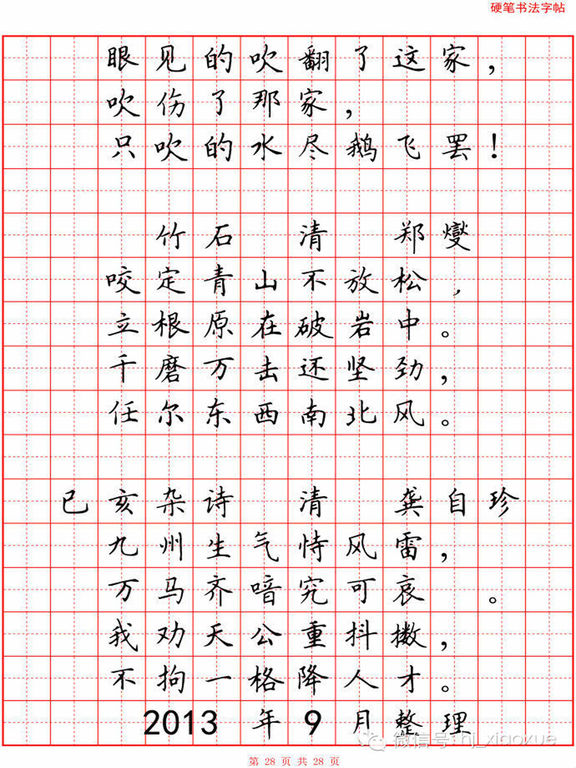 硬笔书法字帖
眼见的吹翻了这家，
吹伤了那家，
只吹的水尽鹅飞罢！
竹石 清 郑燮
咬定青山不放松，
立根原在破岩中。
千磨万击还坚劲，
任尔东西南北风。
已亥杂诗 清 龚自珍
九州生气恃风雷，
万马齐喑究可哀 。
我劝天公重抖擞，
不拘一格降人才。
2013 年 9 月整理
微信号: hj_xiaoxue
第 28 页 共 28 页